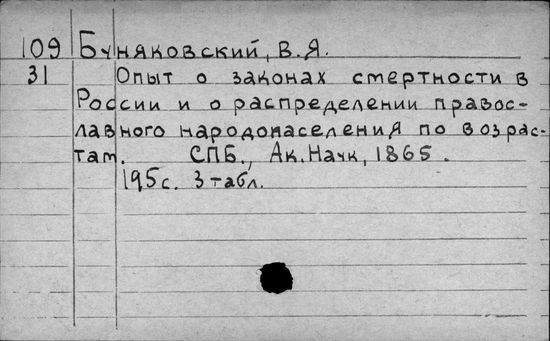 109 Буняковский, В.Я.
31 Опыт о законах смертности в
России и о распределении правос-
лавного народонаселения по возрас-
там. СПБ., Ак. Наук, 1865.
195с. 3 табл.